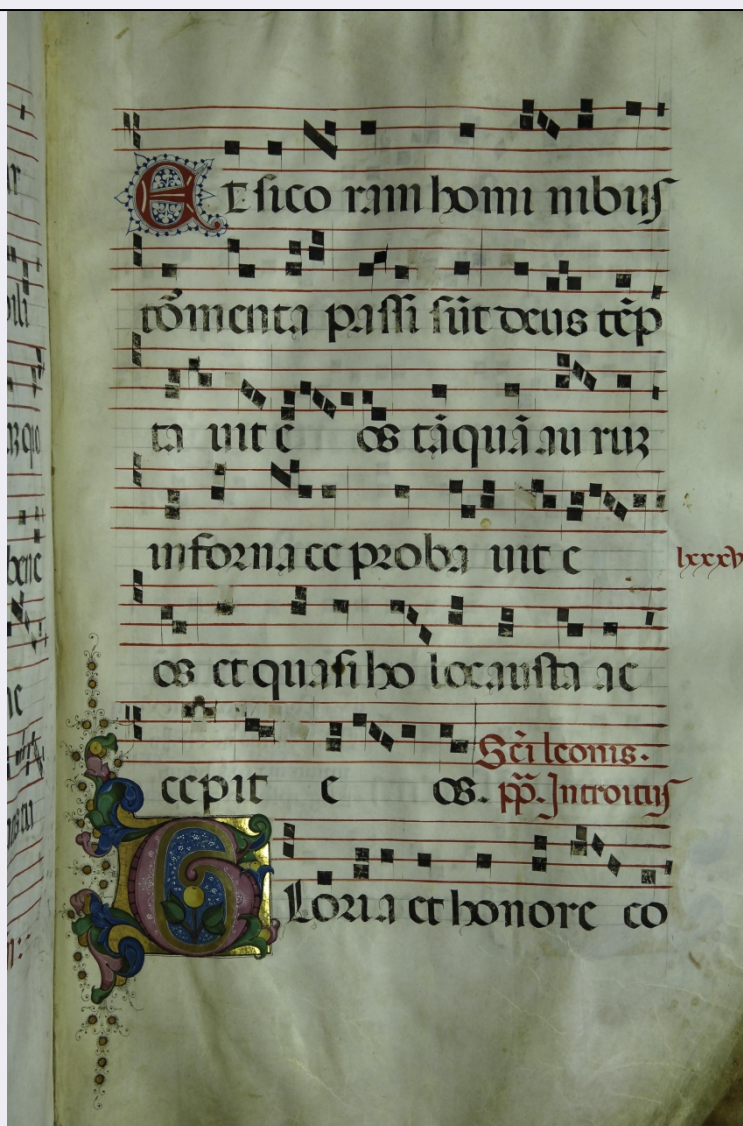 Et si coram hominibus
tõmenta passi sũt deus tẽp
tauit eos tãquã auruʒ
in fornacce probauit e
lxxxv
os et quasi holocausta ac
cepit eos. Scĩ leonis.
pp̃. Introitus
Gloria et honore co